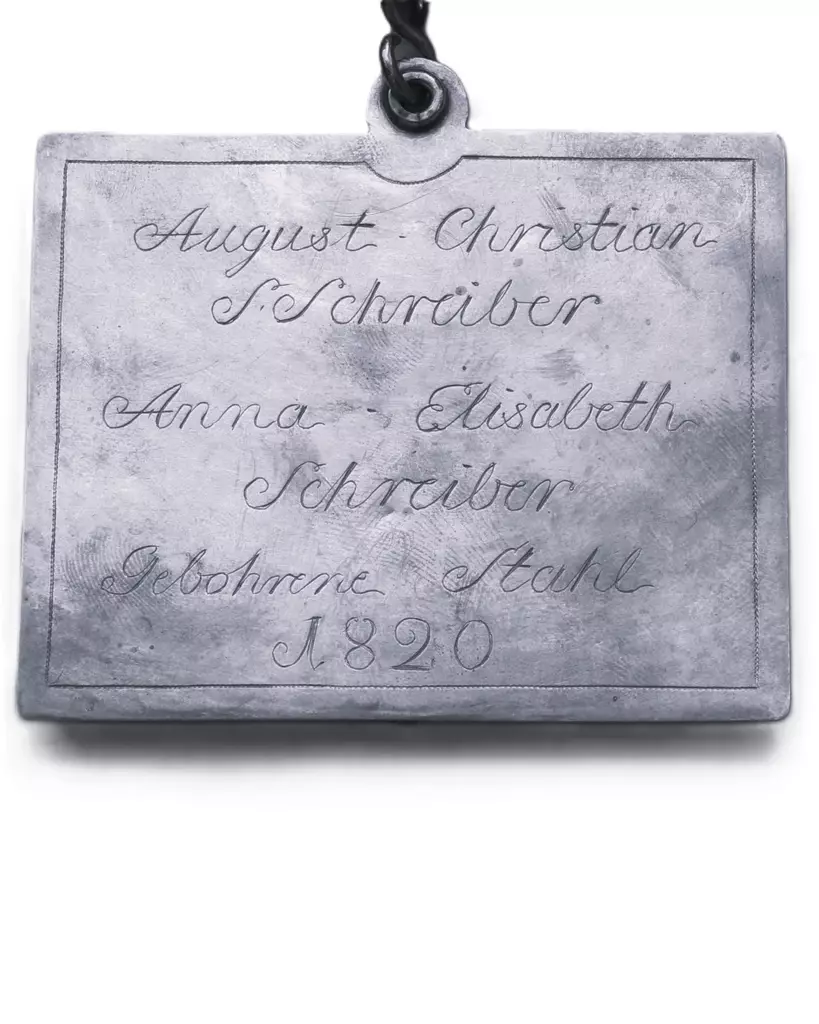 August - Christian
S. Schreiber
Anna - Elisabeth
Schreiber
Gebohrene Stahl
1820